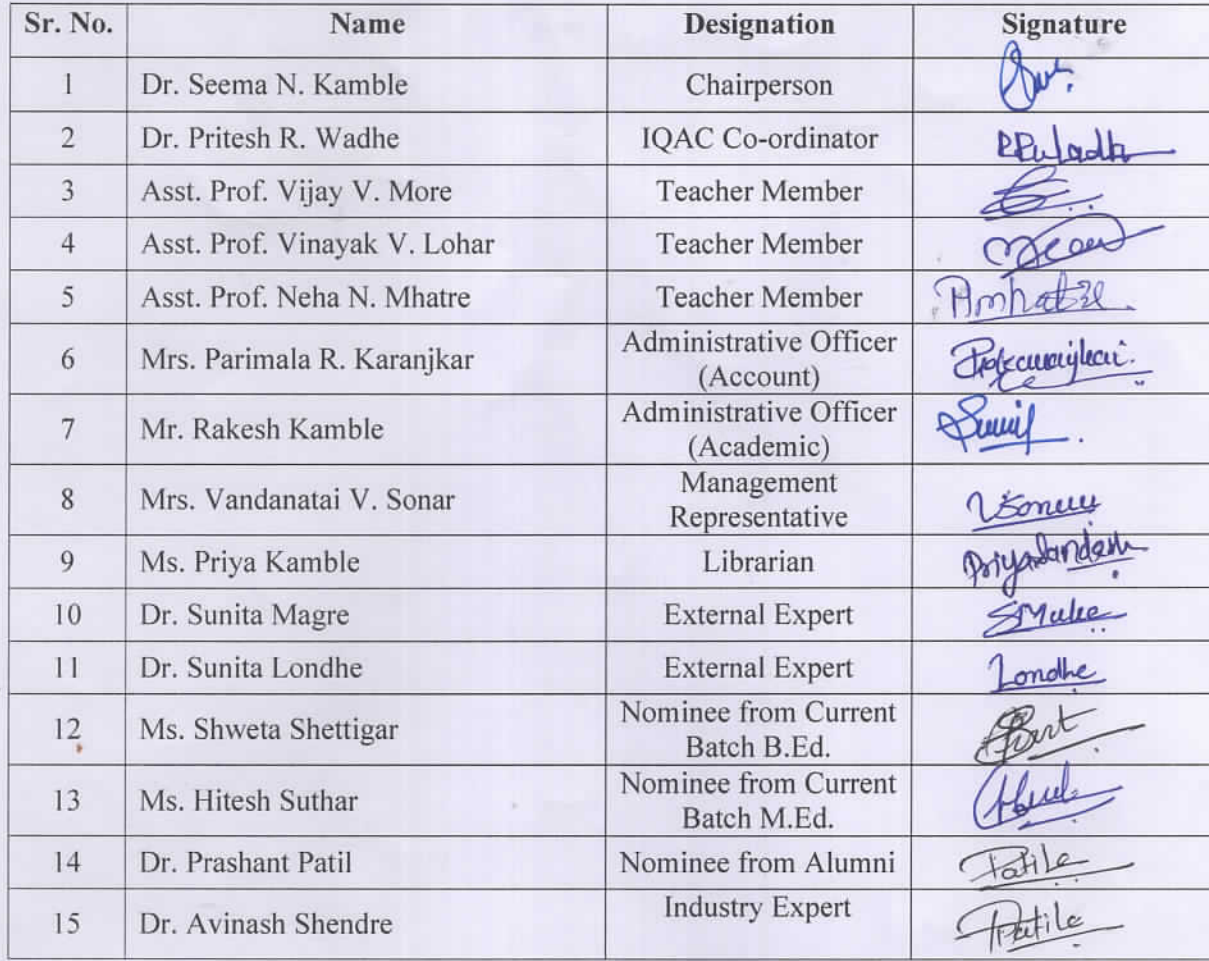 Sr. No. Name Designation Signature
1 Dr. Seema N. Kamble Chairperson
2 Dr. Pritesh R. Wadhe IQAC Co-ordinator
3 Asst. Prof. Vijay V. More Teacher Member
4 Asst. Prof. Vinayak V. Lohar Teacher Member
5 Asst. Prof. Neha N. Mhatre Teacher Member
6 Mrs. Parimala R. Karanjkar Administrative Officer
(Account)
7 Mr. Rakesh Kamble Administrative Officer
(Academic)
8 Mrs. Vandanatai V. Sonar Management
Representative
9 Ms. Priya Kamble Librarian
10 Dr. Sunita Magre External Expert
11 Dr. Sunita Londhe External Expert Londhe
12 Ms. Shweta Shettigar Nominee from Current
Batch B.Ed.
13 Ms. Hitesh Suthar Nominee from Current
Batch M.Ed.
14 Dr. Prashant Patil Nominee from Alumni
15 Dr. Avinash Shendre Industry Expert